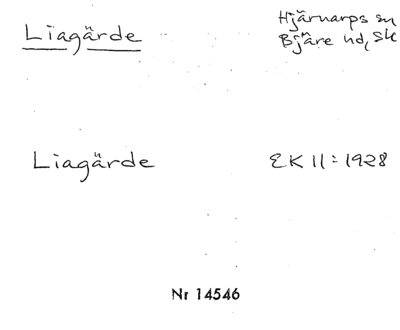 Liagärde
Hjärnarps sn
Bjäre hd, Sk
Liagärde
EK 11:1928
Nr 14546